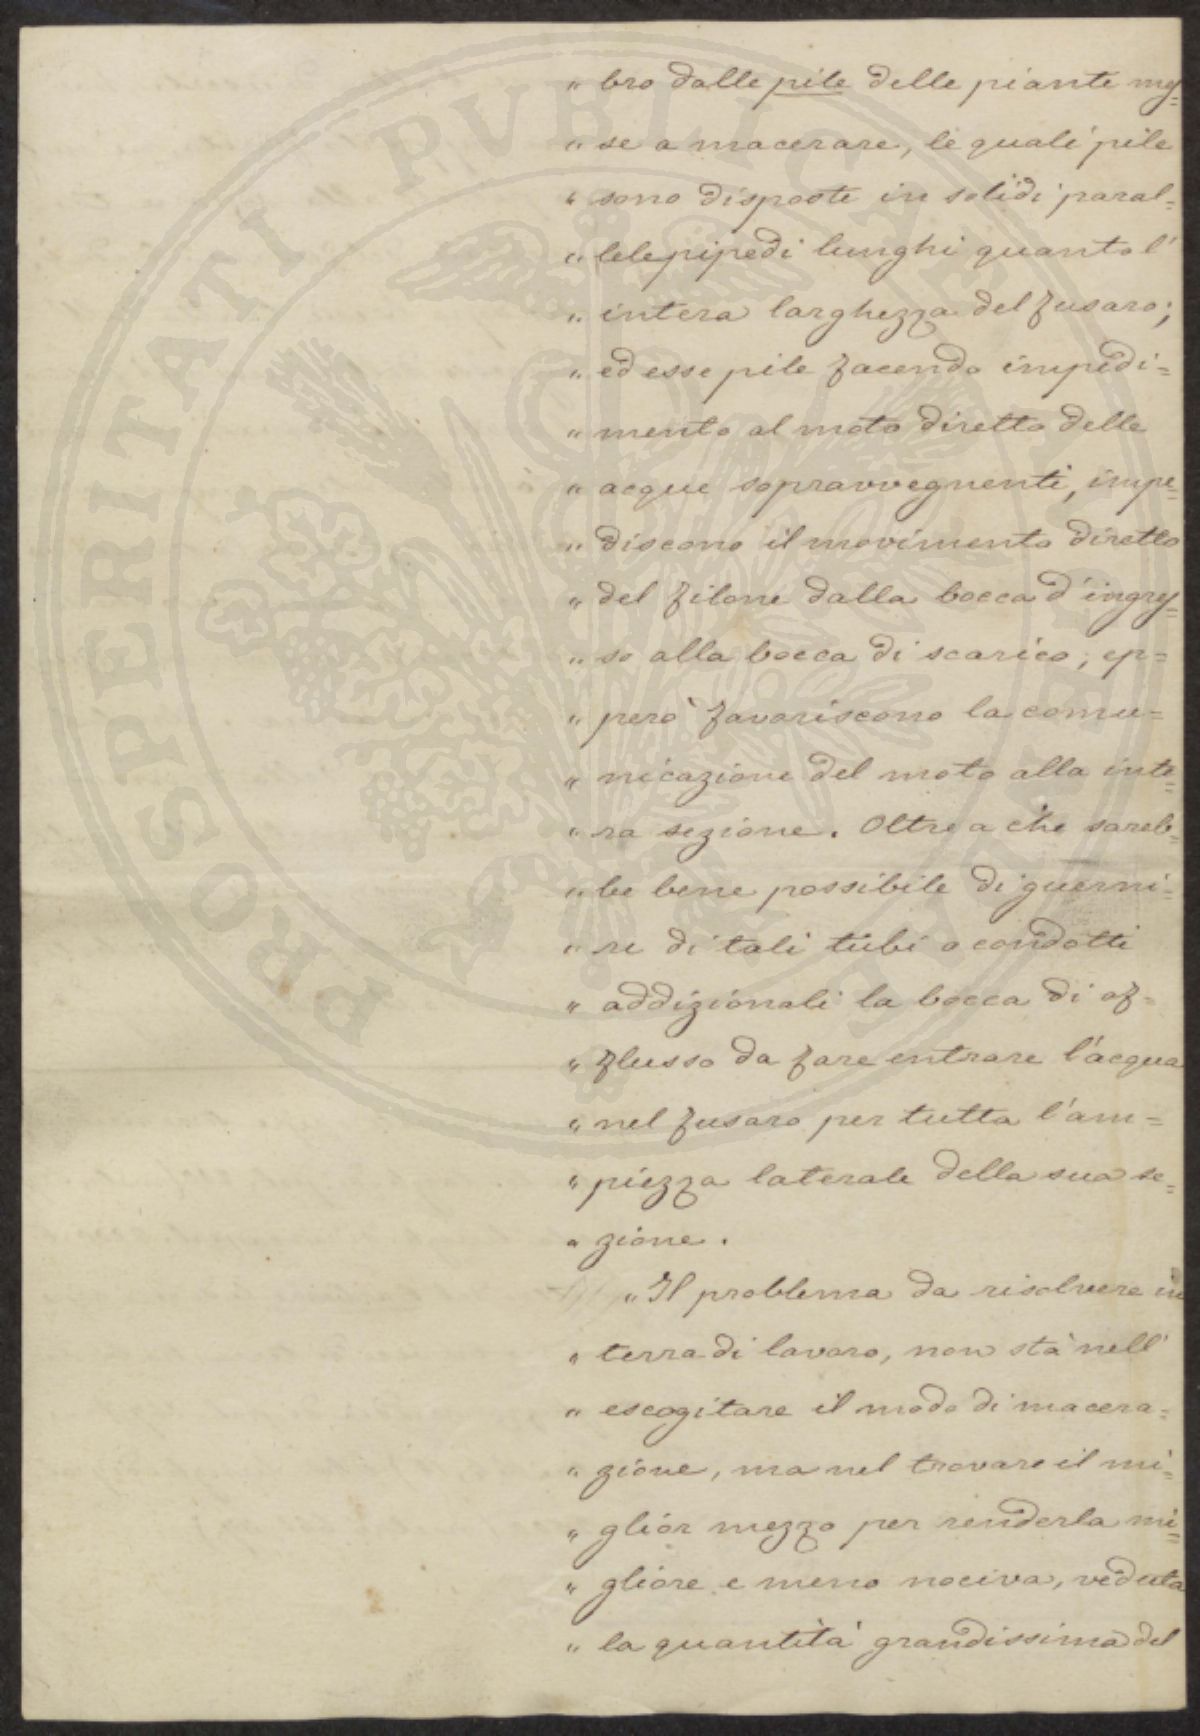 " bro dalle pile delle piante mes=
" se a macerare, le quali pile
" sono disposte in solidi paral=
" lelepipedi lunghi quanto l'
" intera larghezza del fusaro;
" ed esse pile facendo impedi=
" mento al moto diretto delle
" acque sopravvegnenti, impe=
" discono il movimento diretto
" del filone dalla bocca d'ingres=
" so alla bocca di scarico; ep=
" però favoriscono la comu=
" nicazione del moto alla inte=
" ra sezione. Oltre a che sareb=
" be bene possibile di guerni=
" re di tali tubi o condotti
" addizionali la bocca di af=
" flusso da fare entrare l'acqua
" nel fusaro per tutta l'am=
" piezza laterale della sua se=
" zione.
" Il problema da risolvere in
" terra di lavoro, non stà nell'
" escogitare il modo di macera=
" zione, ma nel trovare il mi=
" glior mezzo per renderla mi=
" gliore e meno nociva, veduta
" la quantità grandissima del
PROSPERITATI PVBLICAE